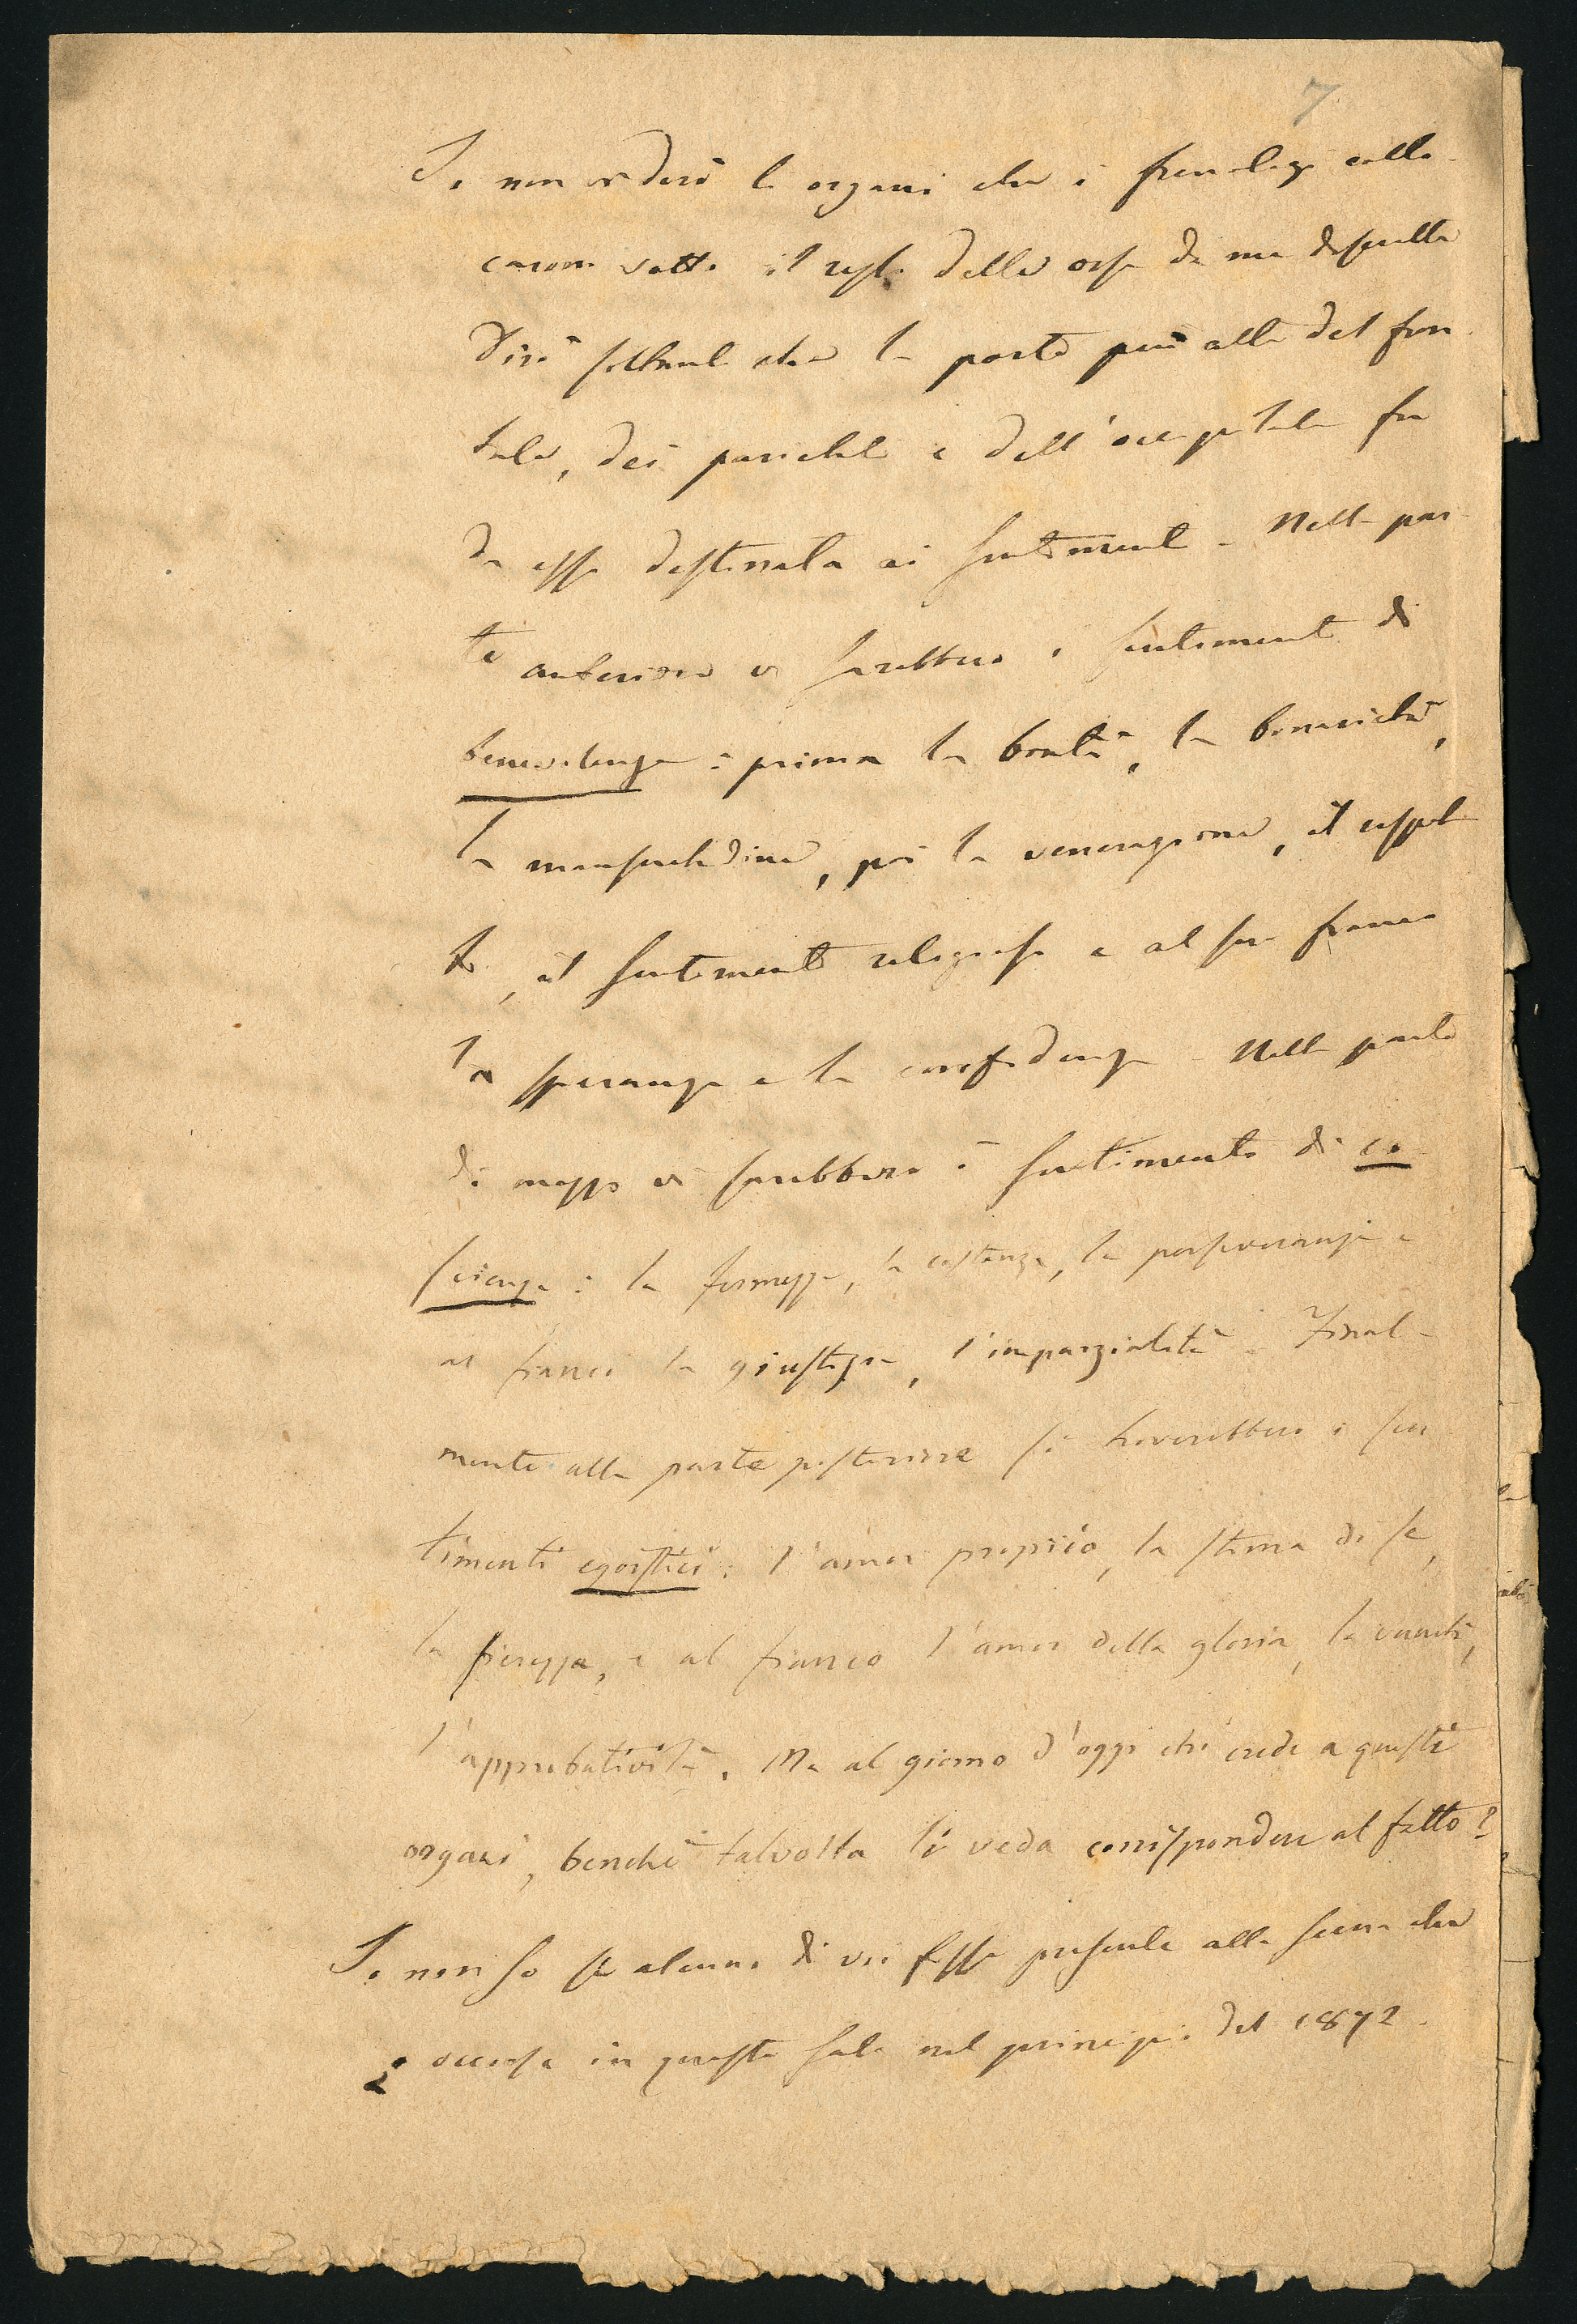 7
Io non vi dirò li organi che i frenologi collo-
carono sotto il resto delle ossa da me descritte
Dirò soltanto che la parte più alta del fron
tale, dei parietali e dell'occipitale fu
da essi destinata ai sentimenti - Nella par-
te anteriore vi sarebbero i sentimenti di
benevolenza: prima la bontà, la bonarietà,
la mansuetudine, poi la venerazione, il rispet
to, il sentimento religioso e al suo fianco
la speranza e la confidenza - Nella parte
di mezzo vi sarebbero i sentimenti di co
scienza: la fermezza, la costanza, la perseveranza e
ai fianchi la giustizia, l'imparzialità. Final-
mente alla parte posteriore si troverebbero i sen
timenti egoistici: l'amor proprio, la stima di se,
la fierezza, e al fianco l'amor della gloria, la vanità,
l'approbatività. Ma al giorno d'oggi chi crede a questi
organi, benchè talvolta li veda corrispondere al fatto?
Io non so se alcuno di voi fosse presente alla scena che
è occorsa in questa sala nel principio del 1872.